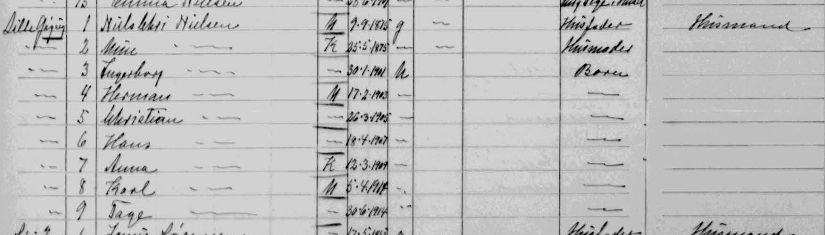 13 Emma Nielsen
1 Niels Chri Nielsen M 9-9-1875 g — Husfader Husmand
— 2 Mine — K 25-5-1875 — — Husmoder
— 3 Ingerborg — — 30-1-1901 U Børn
— 4 Herman — M 17-2-1903 — —
— 5 Christian — — 26-3-1905 — —
— 6 Hans — — 18-4-1907 — —
— 7 Anna — K 12-3-1909 — —
— 8 Karl — M 5-4-1911 — —
— 9 Tage — — 30-6-1914 — —
Husfader Husmand